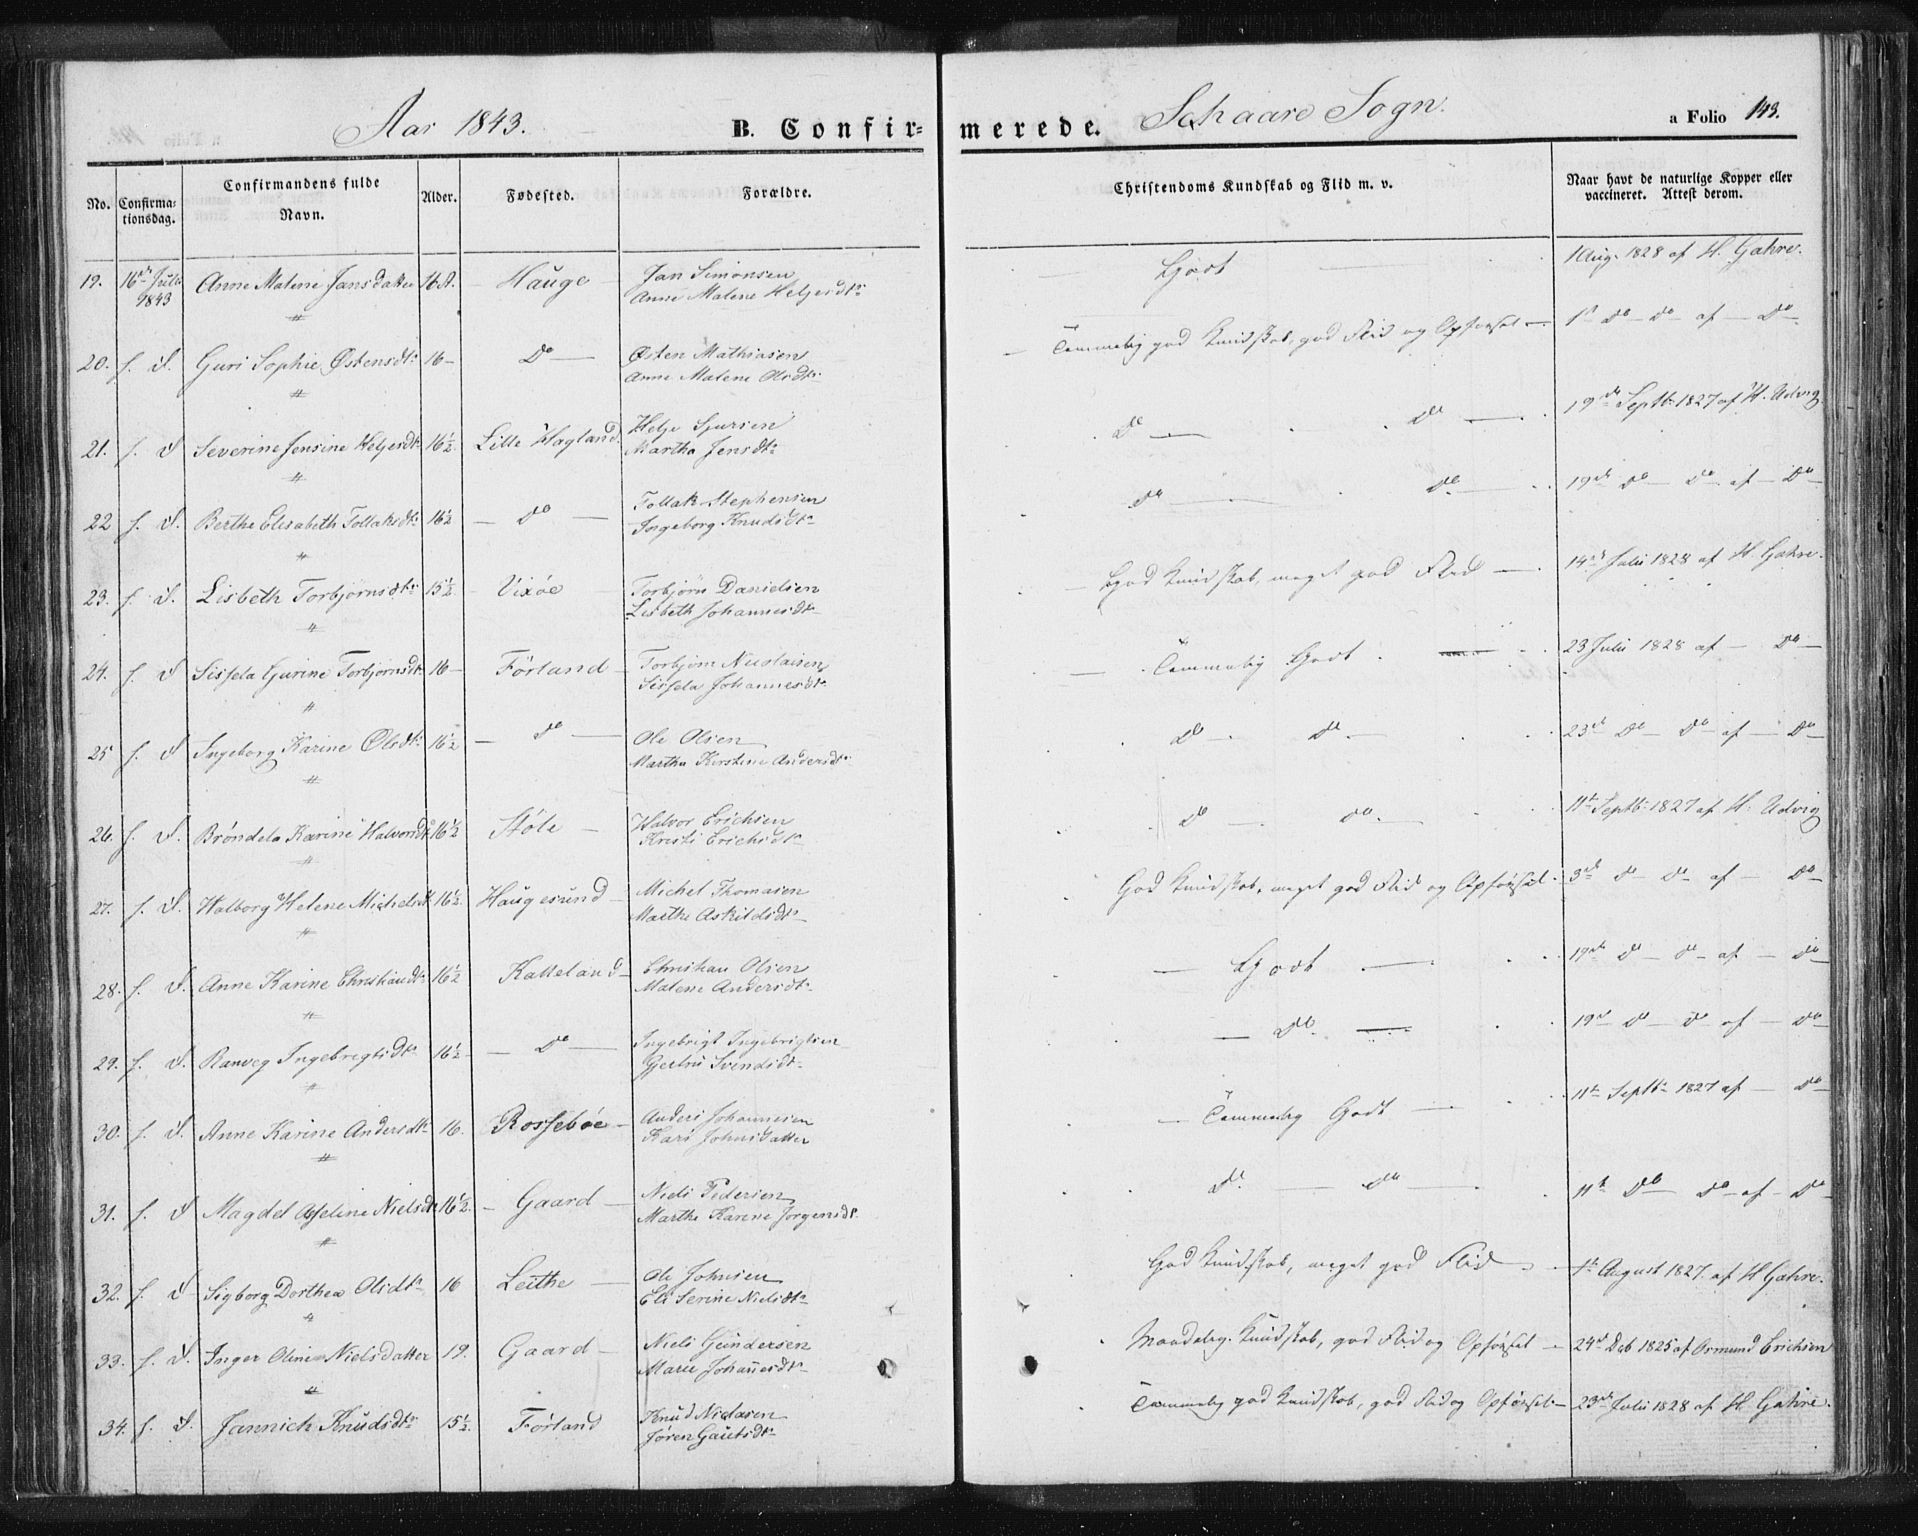 Aar 1843. B. Confir= merede. Schaare Sogn. a Folio 143.
No. Confirma- tionsdag. Confirmandens fulde Navn. Alder. Fødested. Forældre. Christendoms Kundskab og Flid m. v. Naar havt de naturlige Kopper eller vaccineret. Attest derom.
19. 16de Julii 1843 Anne Malene Jansdatter 16 A. Hauge Jan Simonsen Godt 1 Aug. 1828 af H. Gahre.
Anne Malene Heljesdtr
20. f. d. Guri Sophie Østensdtr 16 - Do - Østen Mathiasen Temmelig god Kundskab, god Flid og Opførsel - 1st do - do - af - Do -
Anne Malene Olsdtr
21. f. d. Severine Jensine Heljesdtr 16½ Lille Hagland Helje Sjursen Do - Do - 19de Septb. 1827 af H. Udvig
Martha Jensdtr
22 f. d. Berthe Elisabeth Tollaksdtr 16½ - Do - Tollak Stephensen Do - Do - 19de do - do - af - Do -
Ingeborg Knudsdtr
23. f. d. Lisbeth Torbjørnsdtr 15½ - Vixøe - Torbjørn Danielsen God Kundskab, meget god Flid - 14de Julii 1828 af H. Gahre.
Lisbeth Johannesdtr
24. f. d. Sissela Gurine Torbjørnsdtr 16 - Førland - Torbjørn Nicolaisen Temmelig Godt 23 Julii 1828 af - Do -
Sissela Johannesdtr
25 f. d. Ingeborg Karine Olsdtr 16½ - Do - Ole Olsen Do - Do - 23de Do - Do - af - Do -
Martha Kirstine Andersdtr
26. f. d. Brøndela Karine Halvorsdtr 16½ Støle - Halvor Erichsen Do - Do - 11te Septb. 1827 af H. Udvig
Kristi Erichsdtr
27. f. d. Valborg Helene Michelsdtr 16½ Haugesund - Michel Thomasen God Kundskab, meget god Flid og Opførsel - 3de do do - af - Do -
Marthe Askildsdtr
28. f. d. Anne Karine Christiansdtr 16½ Kalleland - Christian Olsen - Godt - 19de do - do - af - do -
Malene Andersdtr
29. f. d. Ranveg Ingebregtsdtr 16½ - Do - Ingebrigt Ingebrigtsen - Do - 19de do - do af - Do -
Gjertru Svendsdtr
30. f. d. Anne Karine Andersdtr 16. Rossebøe - Anders Johannesen - Temmelig Godt - 11te Septb. 1827 af - Do -
Kari Johnsdatter
31. f. d. Magdel Aseline Nielsdtr 16½ - Gaard - Niels Pedersen Do - Do - 11te Do Do - af - Do -
Marthe Karine Jørgensdtr
32. f. d. Sigborg Dorthea Olsdtr 16 Leithe - Ole Johnsen God Kundskab, meget god Flid - 1ste August 1827 af H Gahre.
Eli Serine Nielsdtr
33. f. d. Inger Oline Nielsdatter 19. Gaard - Niels Gundersen Maadelig Kundskab, god Flid og Opførsel - 24de Deb 1825 af Osmund Erichsen
Marie Johannesdtr
34. f. d. Jannich Knudsdtr 15½ Førland Knud Niclasen Temmelig god Kundskab, god Flid og Opførsel - 23de Julii 1828 af H. Gahre.
Jøren Gautsdtr